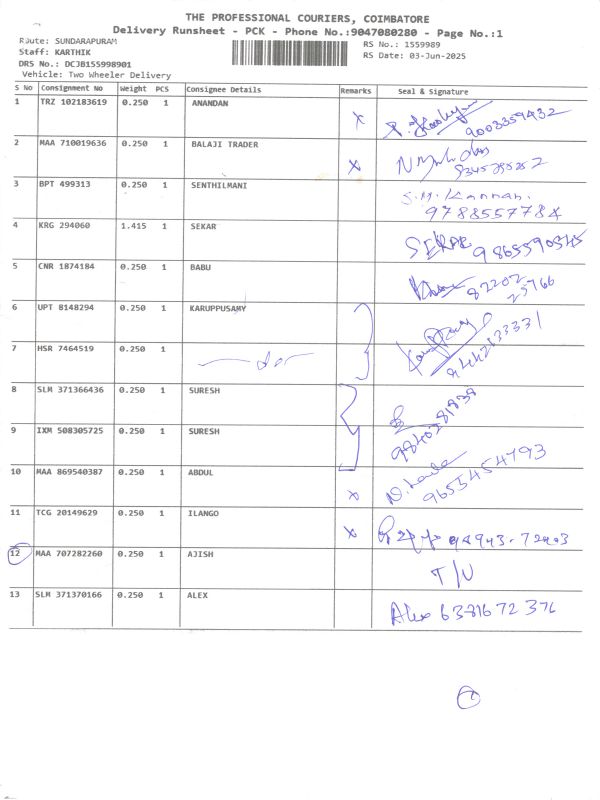 THE PROFESSIONAL COURIERS, COIMBATORE
Delivery Runsheet - PCK - Phone No.:9047080280 - Page No.:1
Route: SUNDARAPURAM
RS No.: 1559989
Staff: KARTHIK
RS Date: 03-Jun-2025
DRS No.: DCJB155998901
Vehicle: Two Wheeler Delivery
S No Consignment No Weight PCS Consignee Details Remarks Seal & Signature
1 TRZ 102183619 0.250 1 ANANDAN x
9003359432
2 MAA 710019636 0.250 1 BALAJI TRADER x
3 BPT 499313 0.250 1 SENTHILMANI S.M. Kannan.
9788557784
4 KRG 294060 1.415 1 SEKAR SEKAR 9865590345
5 CNR 1874184 0.250 1 BABU 82202
25766
6 UPT 8148294 0.250 1 KARUPPUSAMY
7 HSR 7464519 0.250 1 — do —
8 SLM 371366436 0.250 1 SURESH
9 IXM 508305725 0.250 1 SURESH
10 MAA 869540387 0.250 1 ABDUL x 9655454793
11 TCG 20149629 0.250 1 ILANGO x
12 MAA 707282260 0.250 1 AJISH T/U
13 SLM 371370166 0.250 1 ALEX Alex 6381672376